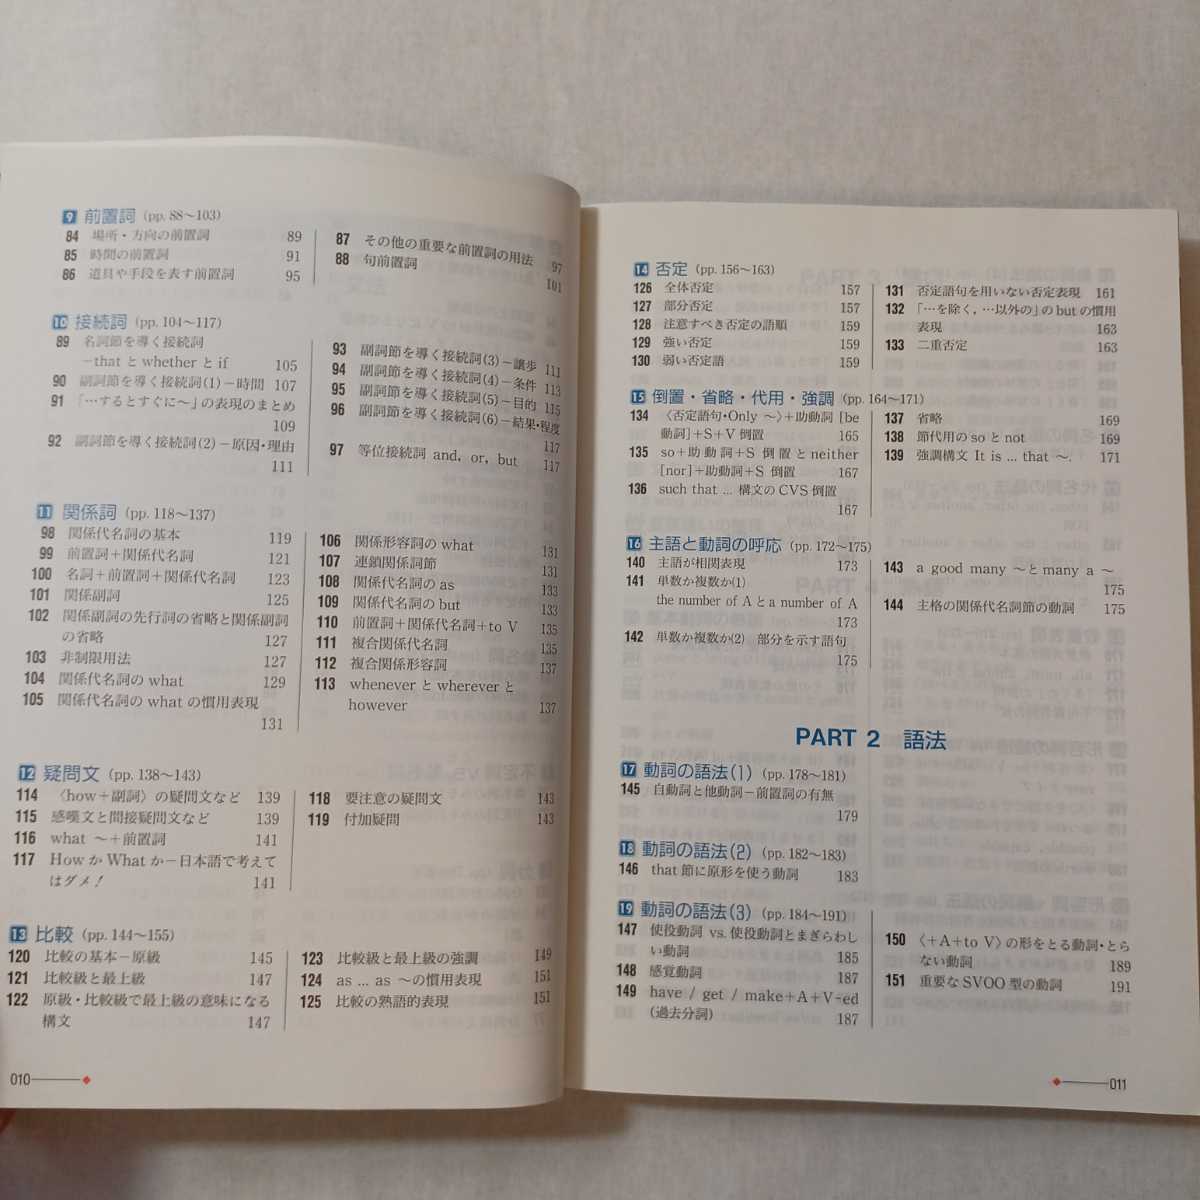 9 前置詞 (pp. 88～103)
84 場所・方向の前置詞 89
85 時間の前置詞 91
86 道具や手段を表す前置詞 95
87 その他の重要な前置詞の用法 97
88 句前置詞 101
10 接続詞 (pp. 104～117)
89 名詞節を導く接続詞
－that と whether と if 105
90 副詞節を導く接続詞(1)－時間 107
91 「…するとすぐに～」の表現のまとめ
109
92 副詞節を導く接続詞(2)－原因・理由
111
93 副詞節を導く接続詞(3)－譲歩 111
94 副詞節を導く接続詞(4)－条件 113
95 副詞節を導く接続詞(5)－目的 115
96 副詞節を導く接続詞(6)－結果・程度
117
97 等位接続詞 and, or, but 117
11 関係詞 (pp. 118～137)
98 関係代名詞の基本 119
99 前置詞＋関係代名詞 121
100 名詞＋前置詞＋関係代名詞 123
101 関係副詞 125
102 関係副詞の先行詞の省略と関係副詞
の省略 127
103 非制限用法 127
104 関係代名詞の what 129
105 関係代名詞の what の慣用表現
131
106 関係形容詞の what 131
107 連鎖関係詞節 131
108 関係代名詞の as 133
109 関係代名詞の but 133
110 前置詞＋関係代名詞＋to V 135
111 複合関係代名詞 135
112 複合関係形容詞 137
113 whenever と wherever と
however 137
12 疑問文 (pp. 138～143)
114 〈how＋副詞〉の疑問文など 139
115 感嘆文と間接疑問文など 139
116 what ～＋前置詞 141
117 How か What か－日本語で考えて
はダメ！ 141
118 要注意の疑問文 143
119 付加疑問 143
13 比較 (pp. 144～155)
120 比較の基本－原級 145
121 比較級と最上級 147
122 原級・比較級で最上級の意味になる
構文 147
123 比較級と最上級の強調 149
124 as … as ～の慣用表現 151
125 比較の熟語的表現 151
010
14 否定 (pp. 156～163)
126 全体否定 157
127 部分否定 157
128 注意すべき否定の語順 159
129 強い否定 159
130 弱い否定語 159
131 否定語句を用いない否定表現 161
132 「…を除く，…以外の」の but の慣用
表現 163
133 二重否定 163
15 倒置・省略・代用・強調 (pp. 164～171)
134 〈否定語句・Only ～〉＋助動詞［be
動詞］＋S＋V 倒置 165
135 so＋助動詞＋S 倒置と neither
［nor］＋助動詞＋S 倒置 167
136 such that … 構文の CVS 倒置
167
137 省略 169
138 節代用の so と not 169
139 強調構文 It is … that ～. 171
16 主語と動詞の呼応 (pp. 172～175)
140 主語が相関表現 173
141 単数か複数か(1)
the number of A と a number of A
173
142 単数か複数か(2) 部分を示す語句
175
143 a good many ～と many a ～
175
144 主格の関係代名詞節の動詞 175
PART 2 語法
17 動詞の語法(1) (pp. 178～181)
145 自動詞と他動詞－前置詞の有無
179
18 動詞の語法(2) (pp. 182～183)
146 that 節に原形を使う動詞 183
19 動詞の語法(3) (pp. 184～191)
147 使役動詞 vs. 使役動詞とまぎらわし
い動詞 185
148 感覚動詞 187
149 have / get / make＋A＋V-ed
(過去分詞) 187
150 〈＋A＋to V〉の形をとる動詞・とら
ない動詞 189
151 重要な SVOO 型の動詞 191
011